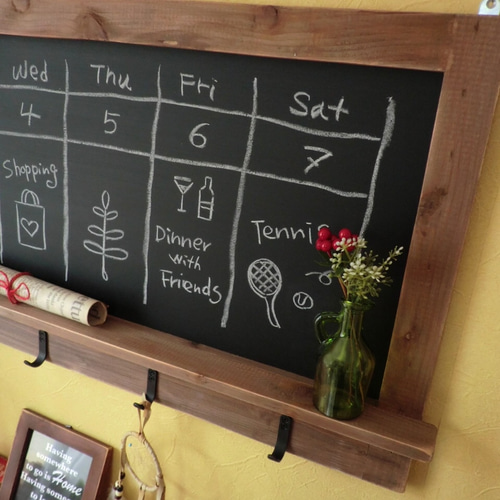 Wed Thu Fri Sat
4 5 6 7
Shopping
Dinner
with
Friends
Tennis
Having
somewhere
to go is Home
Having some